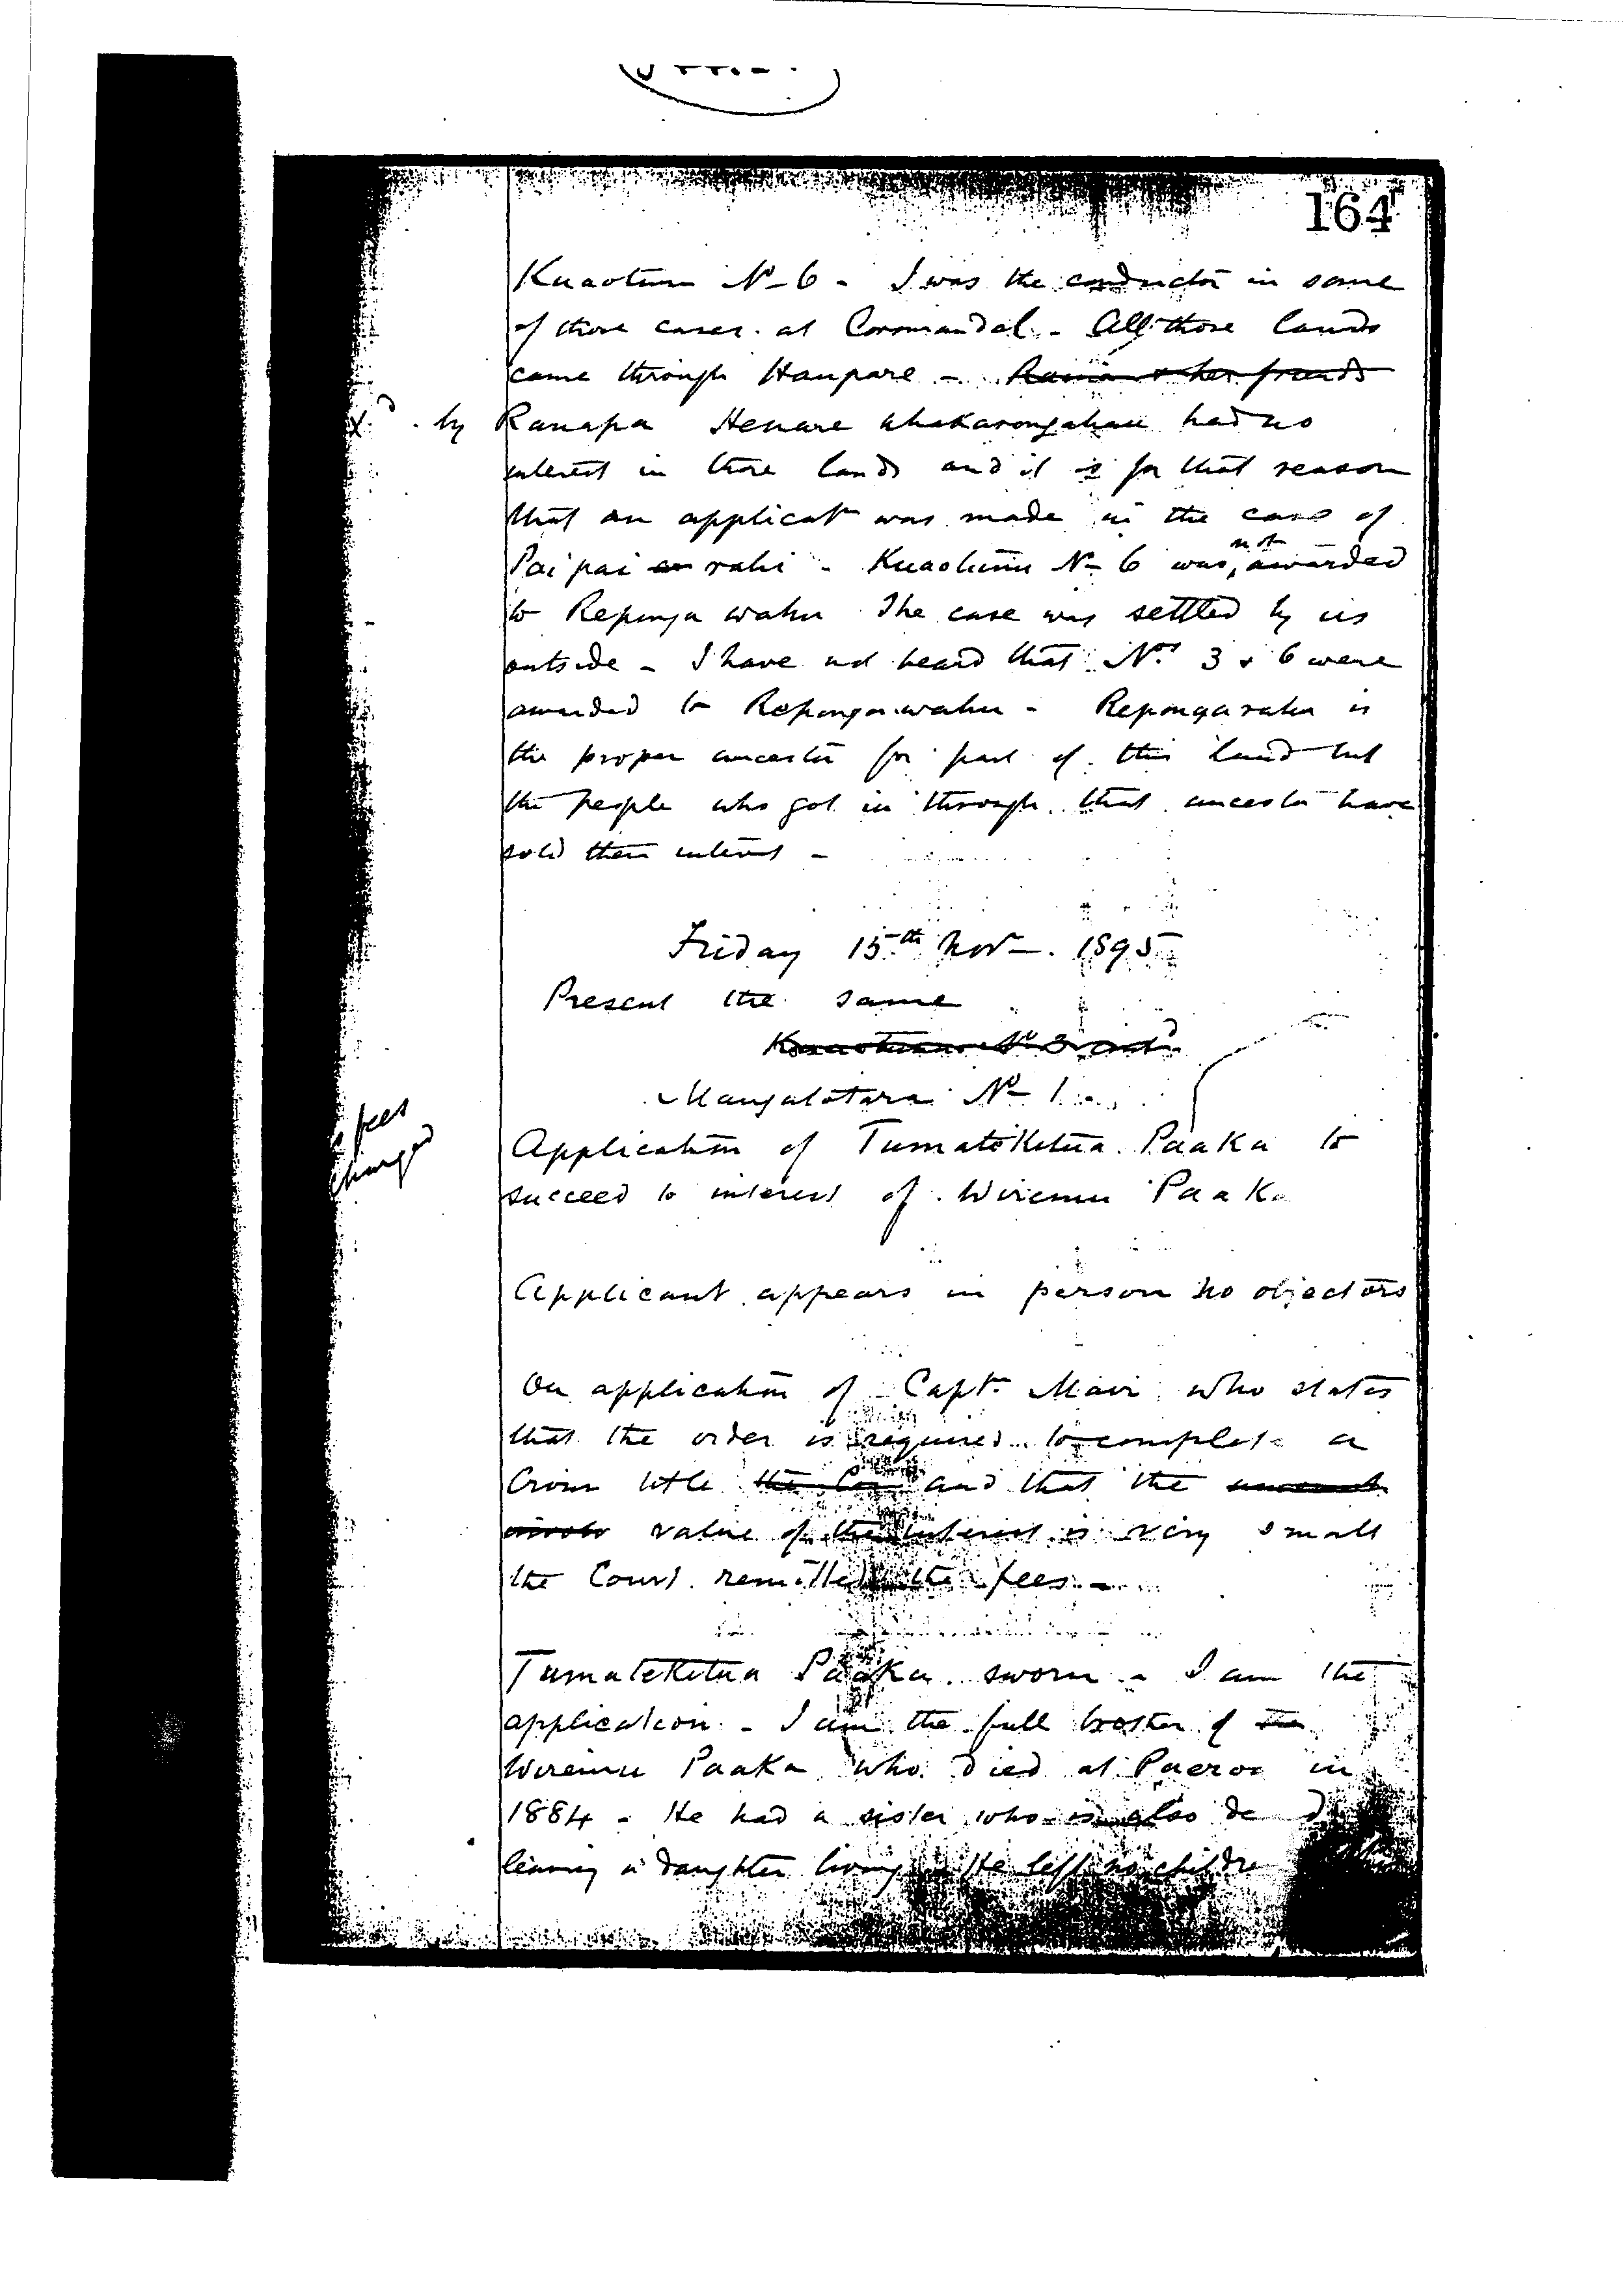 164
Kuaotunu No 6 - I was the conductor in some
of those cases at Coromandel - All those lands
came through Haupare -
Xd by Ranapa Henare Whakarongahau had no
interest in those lands and it is for that reason
that an applicatn was made in the case of
Paipai rahi - Kuaotunu No 6 was not awarded
to Reponga wahu The case was settled by us
outside - I have not heard that Nos 3 & 6 were
awarded to Repongawahu - Repongarahu is
the proper ancestor for part of this land but
the people who got in through that ancestor have
sold their interest -
Friday 15th Nov - 1895
Present the same
Kuaotunu No 3
Mangatotara No 1
fees
charged
Application of Tumateketua Paaka to
succeed to interest of Wiremu Paaka
Applicant appears in person no objectors
On application of Capt. Mair who states
that the order is required to complete a
Crown title the Cou and that the amount
involv value of the interest is very small
the Court remitted the fees -
Tumateketua Paaka sworn - I am the
application - I am the full brother of the
Wiremu Paaka who died at Paeroa in
1884 - He had a sister who is also de d
leaving a daughter living - He left no childre